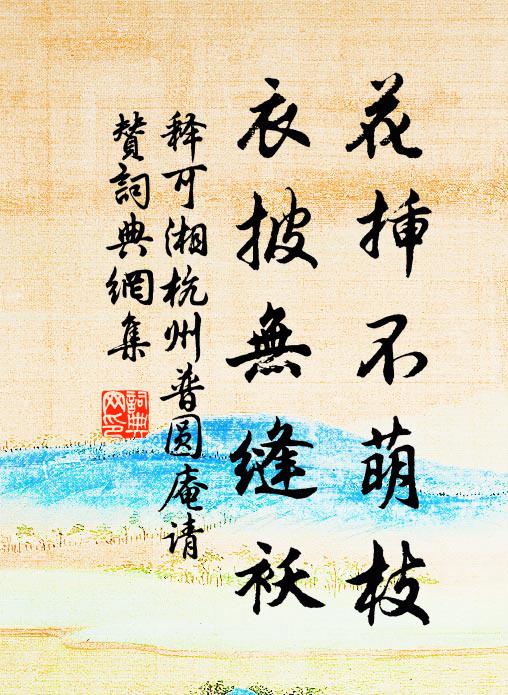 花挿不萌枝
衣披無縫袄
释可湘杭州普圆庵请
贊詞典網集
詞典
网印